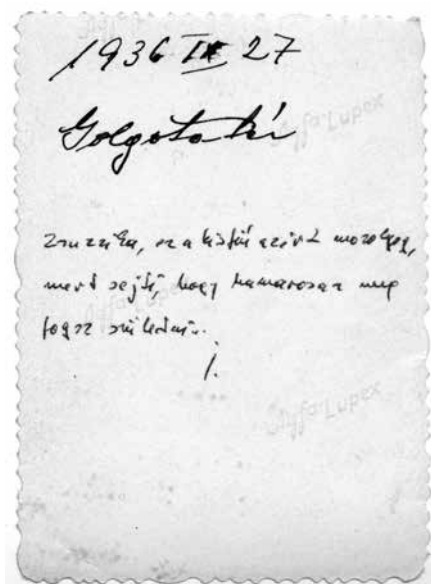 1936 IX 27
Golgota tér
Zsuzsika, ez a kisfiú azért mosolyog,
mert sejti, hogy hamarosan meg
fogsz születni.
J.
Agfa-Lupex
Agfa-Lupex
Agfa-Lupex